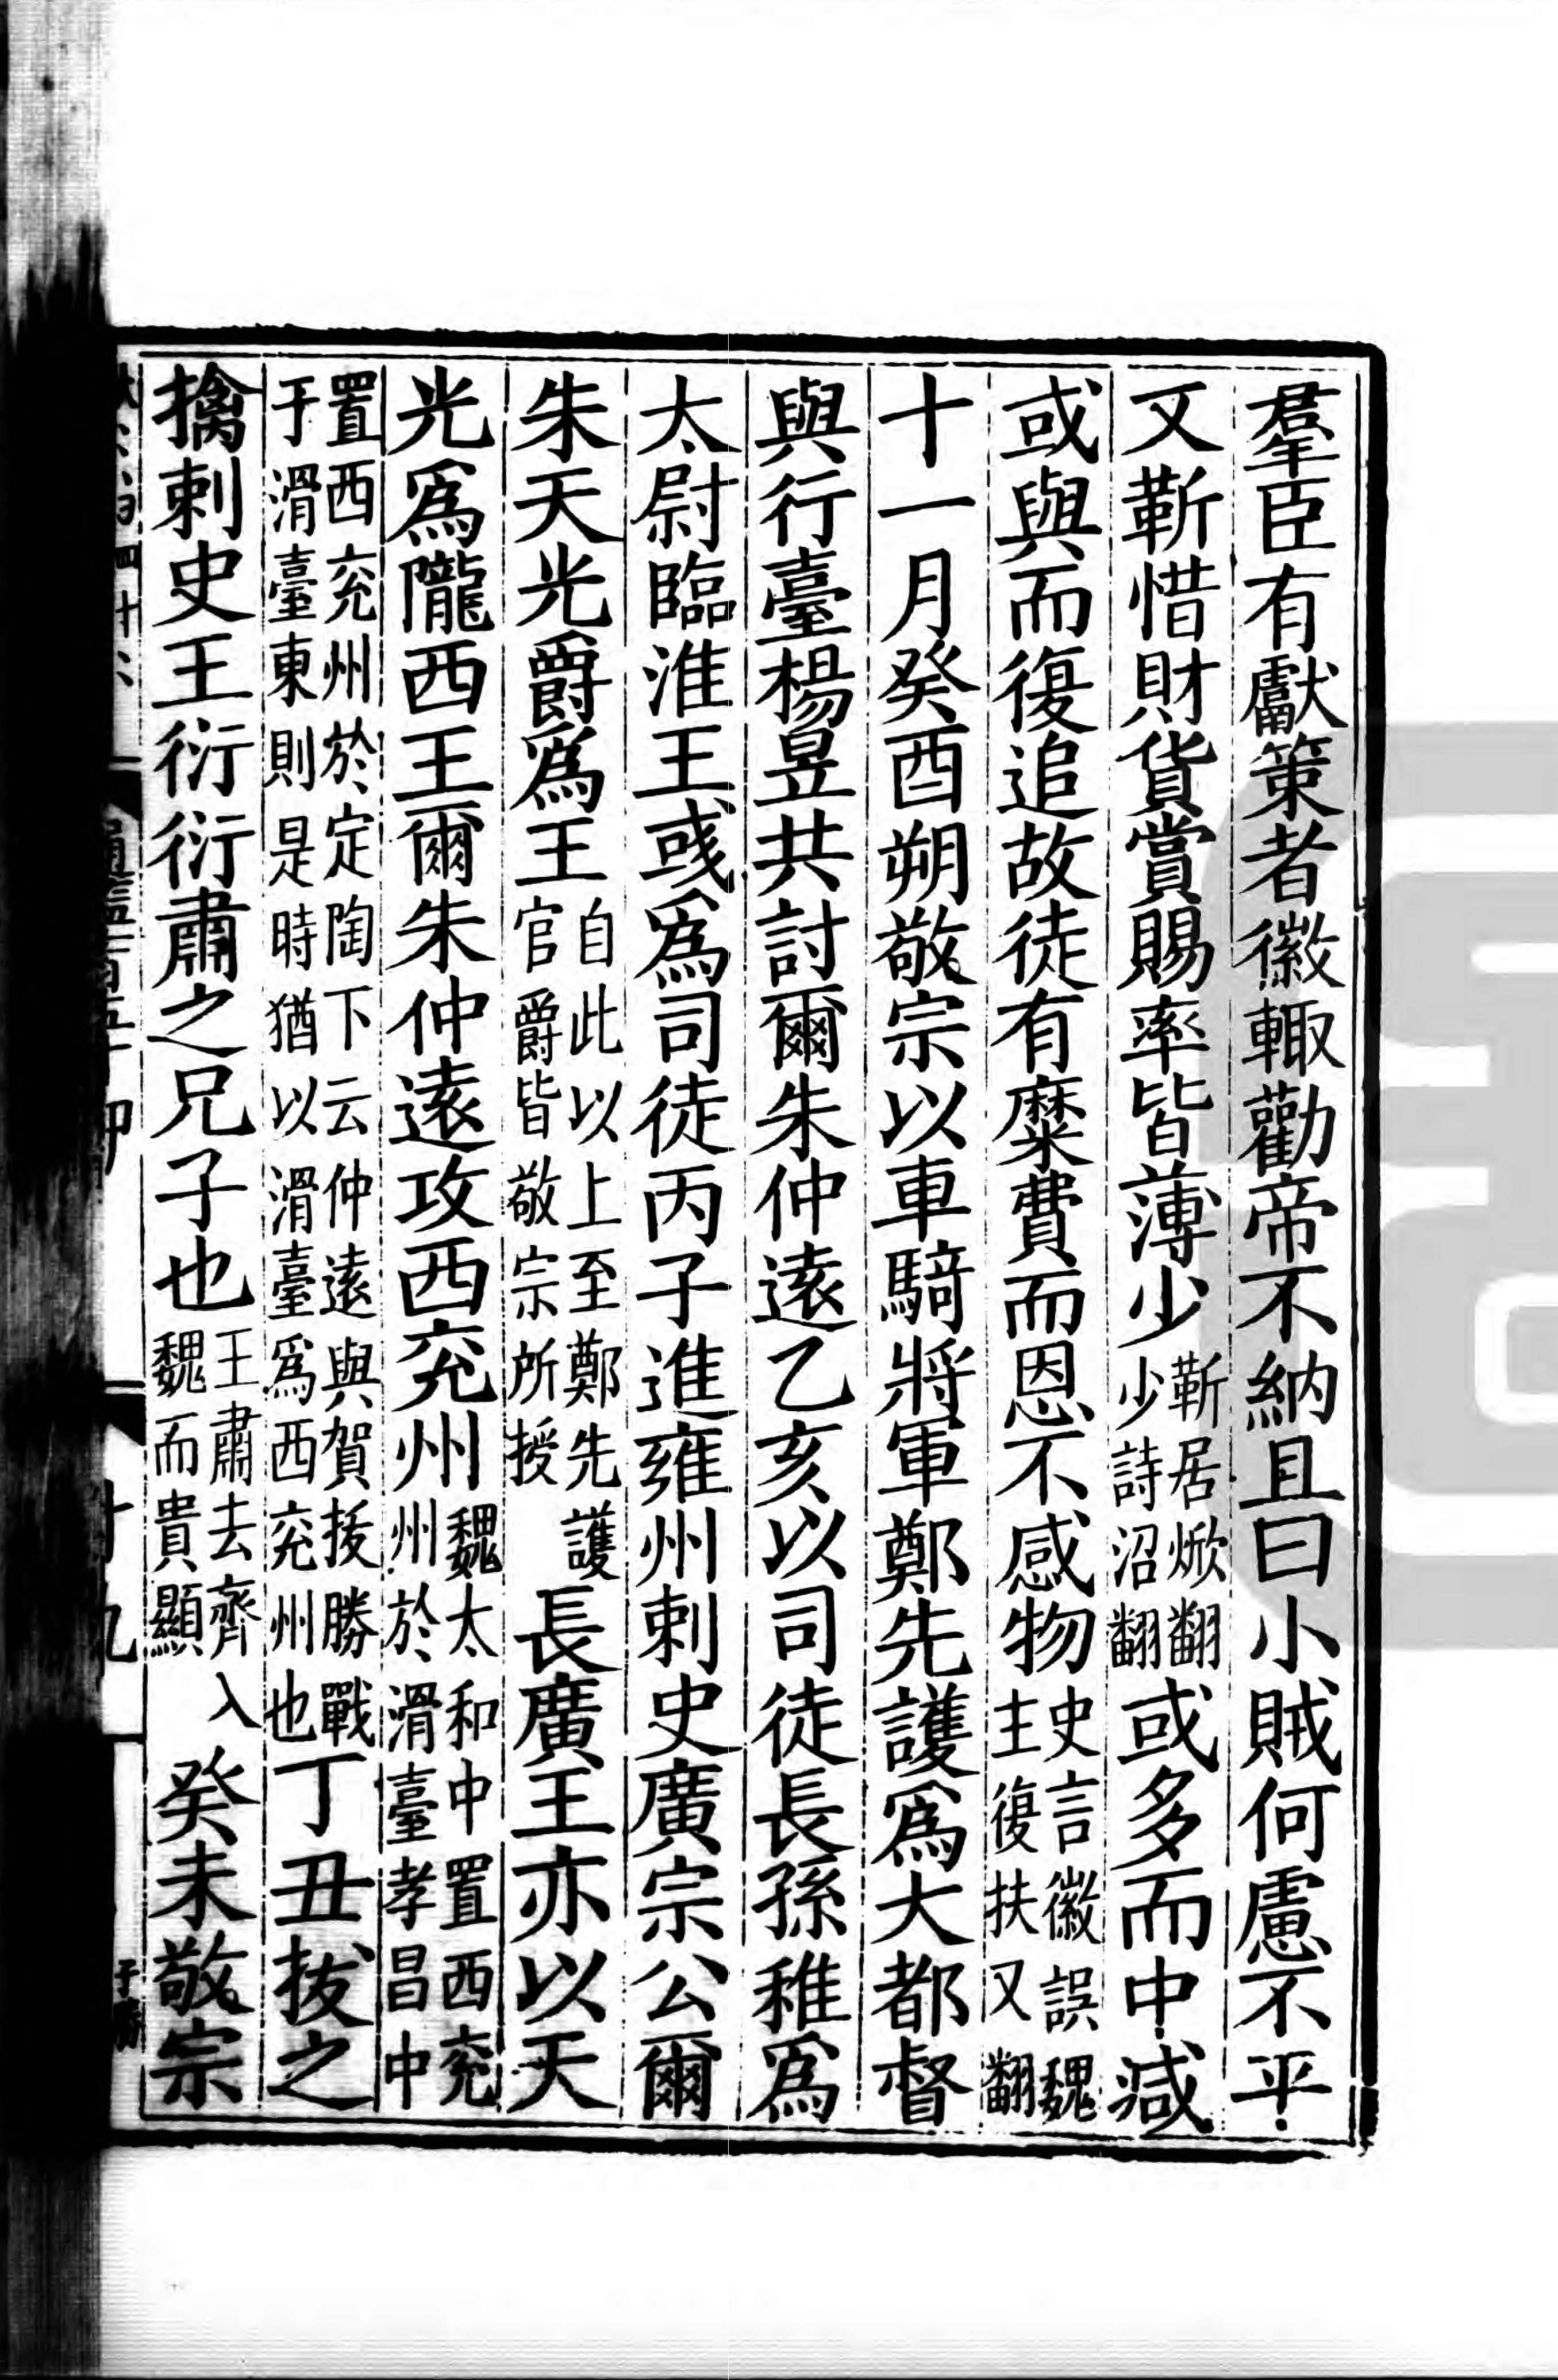 羣臣有獻策者徽輙勸帝不納且曰小賊何慮不平
又靳惜財貨賞賜率皆薄少靳居焮翻少詩沼翻或多而中減
或與而復追故徒有糜費而恩不感物史言徽誤魏主復扶又翻
十一月癸酉朔敬宗以車騎將軍鄭先護爲大都督
與行臺楊昱共討爾朱仲遠乙亥以司徒長孫稚爲
太尉臨淮王彧爲司徒丙子進雍州刺史廣宗公爾
朱天光爵爲王自此以上至鄭先護官爵皆敬宗所授長廣王亦以天
光爲隴西王爾朱仲遠攻西兖州魏太和中置西兖州於滑臺孝昌中
置西兖州於定陶下云仲遠與賀拔勝戰于滑臺東則是時猶以滑臺爲西兖州也丁丑拔之
擒刺史王衍衍肅之兄子也王肅去齊入魏而貴顯癸未敬宗